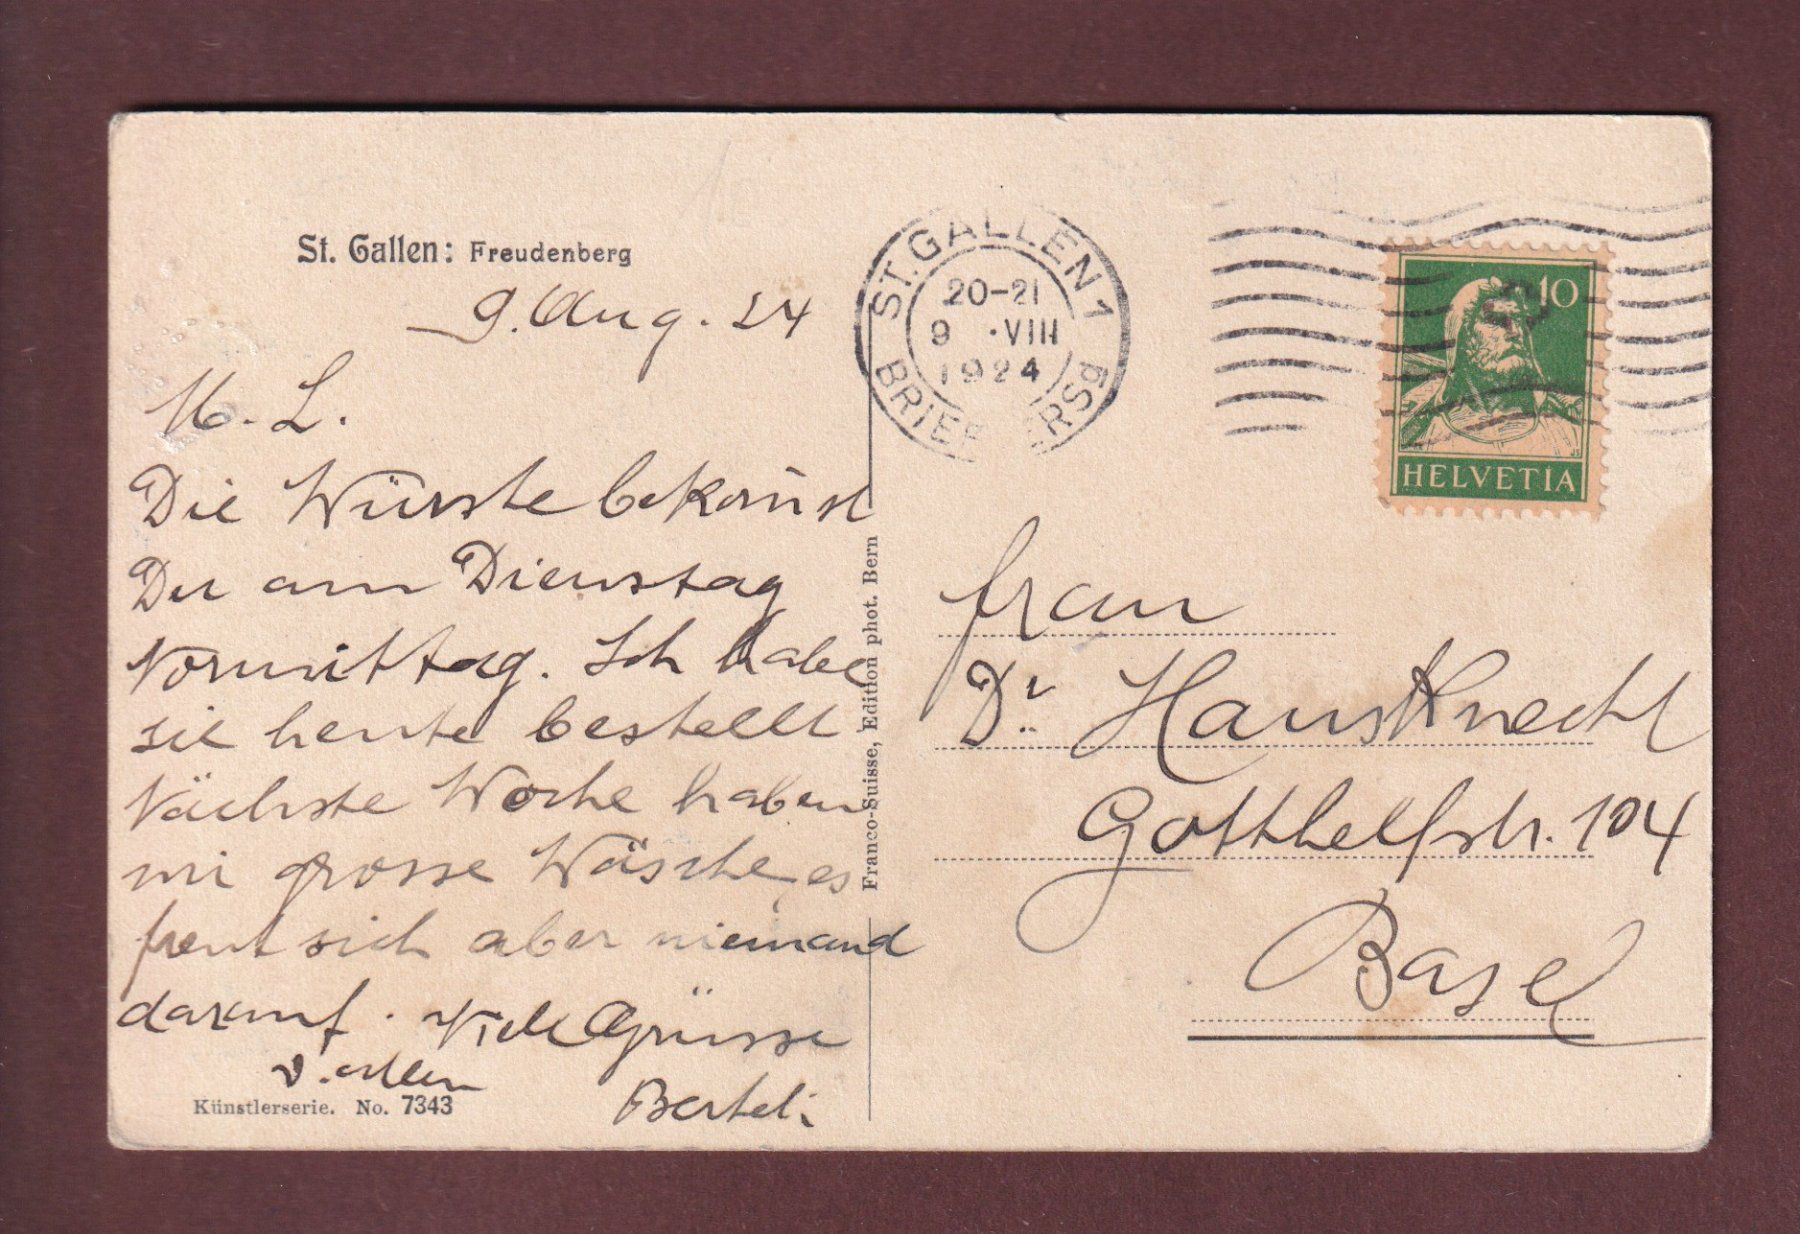 St. Gallen: Freudenberg
9. Aug. 24
M. L.
Die Würste bekom̅st
Du am Dienstag
Vormittag. Ich habe
sie heute bestellt
Nächste Woche haben
wir grosse Wäsche, es
freut sich aber niemand
darauf. Viele Grüsse
v. allen
Berteli
Künstlerserie. No. 7343
Franco-Suisse, Edition phot. Bern
ST. GALLEN 1
20-21
9 ·VIII
1924
BRIEF ERSG
10
HELVETIA
Frau
Dr. Hausknecht
Gotthelfstr. 104
Basel